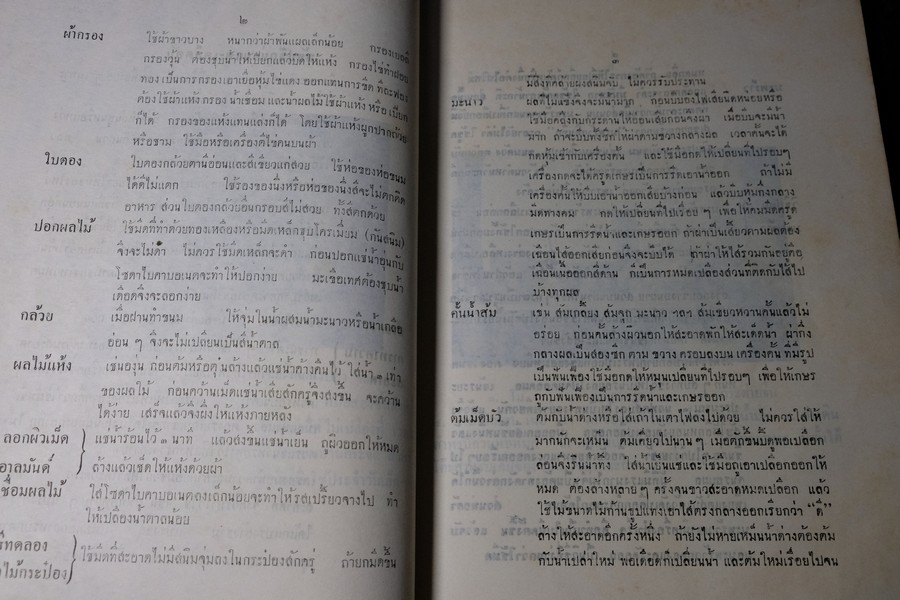 ๒
ผ้ากรอง ใช้ผ้าขาวบาง หนากว่าผ้าพันแผลเล็กน้อย กรองเยลลี่
กรองวุ้น ต้องชุบน้ำให้เปียกแล้วบิดให้แห้ง กรองไข่ทำฝอย
ทอง เป็นการกรองเอาเยื่อหุ้มไข่แดง ออกแทนการรีด
ต้องใช้ผ้าแห้ง กรอง น้ำเชื่อม และน้ำผลไม้ใช้ผ้าแห้ง หรือ เปียก
ก็ได้ กรองของแห้งแทนแล่งก็ได้ โดยใช้ผ้าแห้งผูกปากถ้วย
หรือชาม ใช้มือหรือเครื่องตีไข่คนบนผ้า
ใบตอง ใบตองกล้วยตานีอ่อนและสีเขียวแก่สวย ใช้ห่อของห่อขนม
ได้ดีไม่แตก ใช้รองของนึ่งหรือห่อของนึ่งสีจะไม่ตกติด
อาหาร ส่วนใบตองกล้วยอื่นกรอบสีไม่สวย ทั้งสีตกด้วย
ปอกผลไม้ ใช้มีดที่ทำด้วยทองเหลืองหรือมีดเหล็กชุบโครเมี่ยม (กันสนิม)
จึงจะไม่ดำ ไม่ควรใช้มีดเหล็กจะดำ ก่อนปอกแช่น้ำอุ่นกับ
โซดาไบคาบอเนตจะทำให้ปอกง่าย มะเขือเทศต้องชุบน้ำ
เดือดจึงจะลอกง่าย
กล้วย เมื่อฝานทำขนม ให้จุ่มในน้ำผสมน้ำมะนาวหรือน้ำเกลือ
อ่อน ๆ จึงจะไม่เปลี่ยนเป็นสีน้ำตาล
ผลไม้แห้ง เช่นองุ่น ก่อนต้มหรือตุ๋นล้างแล้วแช่น้ำค้างคืนไว้ ใส่น้ำ ๓ เท่า
ของผลไม้ ก่อนคว้านเม็ดแช่น้ำเสียสักครู่จึงสงขึ้น จะคว้าน
ได้ง่าย เสร็จแล้วจึงผึ่งให้แห้งภายหลัง
ลอกผิวเม็ด แช่น้ำร้อนไว้ ๓ นาที แล้วสงขึ้นแช่น้ำเย็น ถูผิวออกให้หมด
อาลมันด์ ล้างแล้วเช็ดให้แห้งด้วยผ้า
เชื่อมผลไม้ ใส่โซดาไบคาบอเนตลงเล็กน้อยจะทำให้รสเปรี้ยวจางไป ทำ
ให้เปลืองน้ำตาลน้อย
ใช้มีดที่สะอาดไม่มีสนิมจุ่มลงในกระป๋องสักครู่ ถ้ายกมีดขึ้น
ไม้กระป๋อง
๓
มีสิ่งที่คล้ายสนิมจับ ไม่ควรรับประทาน
มะนาว ผลที่ไม่แข็งจึงจะมีน้ำมาก ก่อนบีบต้องไซ้เสียนิดหน่อยหรือ
ใช้มือคลึงกับกระดานให้อ่อนเสียก่อนจึงผ่า เมื่อบีบจะมีน้ำ
มาก ถ้าจะบีบทั้งซีกให้ผ่าตามขวางกลางผล เวลาคั้นจะได้
กดหุ้มเข้ากับเครื่องคั้น และใช้มือกดให้เปลี่ยนที่ไปรอบๆ
เครื่องกดจะได้ครูดเกษรเป็นการรีดเอาน้ำออก ถ้าไม่มี
เครื่องคั้นให้บีบเอาน้ำออกเสียบ้างก่อน แล้วบีบหุ้มกึ่งกลาง
มีดทางคม กดให้เปลี่ยนที่ไปเรื่อย ๆ เพื่อให้คมมีดครูด
เกษรเป็นการรีดน้ำและเกษรออก ถ้าผ่าเป็นเสี้ยวตามผลต้อง
เฉือนไส้ออกเสียก่อนจึงจะบีบได้ ถ้าผ่าให้ไส้รวมกันอยู่คือ
เฉือนเนื้อออกสี่ด้าน ก็เป็นการหมดเปลืองส่วนที่ติดกับไส้ไป
บ้างทุกผล
คั้นน้ำส้ม เช่น ส้มเกลี้ยง ส้มจุก มะนาว ฯลฯ ส้มเขียวหวานคั้นแล้วไม่
อร่อย ก่อนคั้นล้างผิวนอกให้สะอาดพักให้สะเด็ดน้ำ ผ่ากึ่ง
กลางผลเป็นสองซีก ตาม ขวาง ครอบลงบน เครื่องคั้น ที่มีรูป
เป็นฟันเฟืองใช้มือกดให้หมุนเปลี่ยนที่ไปรอบๆ เพื่อให้เกษร
ถูกกับฟันเฟืองเป็นการรีดน้ำและเกษรออก
ต้มเม็ดบัว ต้มกับน้ำด่างหรือใส่เถ้าในเตาไฟลงไปด้วย ไม่ควรใส่ให้
มากนักจะเหม็น ต้มเคี่ยวไปนานๆ เมื่อตักขึ้นบี้ดูพอเปลือก
ล่อนจึงรินน้ำทิ้ง ใส่น้ำเย็นแช่และใช้มือถูเอาเปลือกออกให้
หมด ต้องล้างหลายๆ ครั้งจนขาวสะอาดหมดเปลือก แล้ว
ใช้ไม้ขนาดไม้ก้านธูปแทงเอาไส้ตรงกลางออกเรียกว่า “ดี”
ล้างให้สะอาดอีกครั้งหนึ่ง ถ้ายังไม่หายเหม็นน้ำด่างต้องต้ม
กับน้ำเปล่าใหม่ พอเดือดก็เปลี่ยนน้ำ และต้มใหม่เรื่อยไปจน